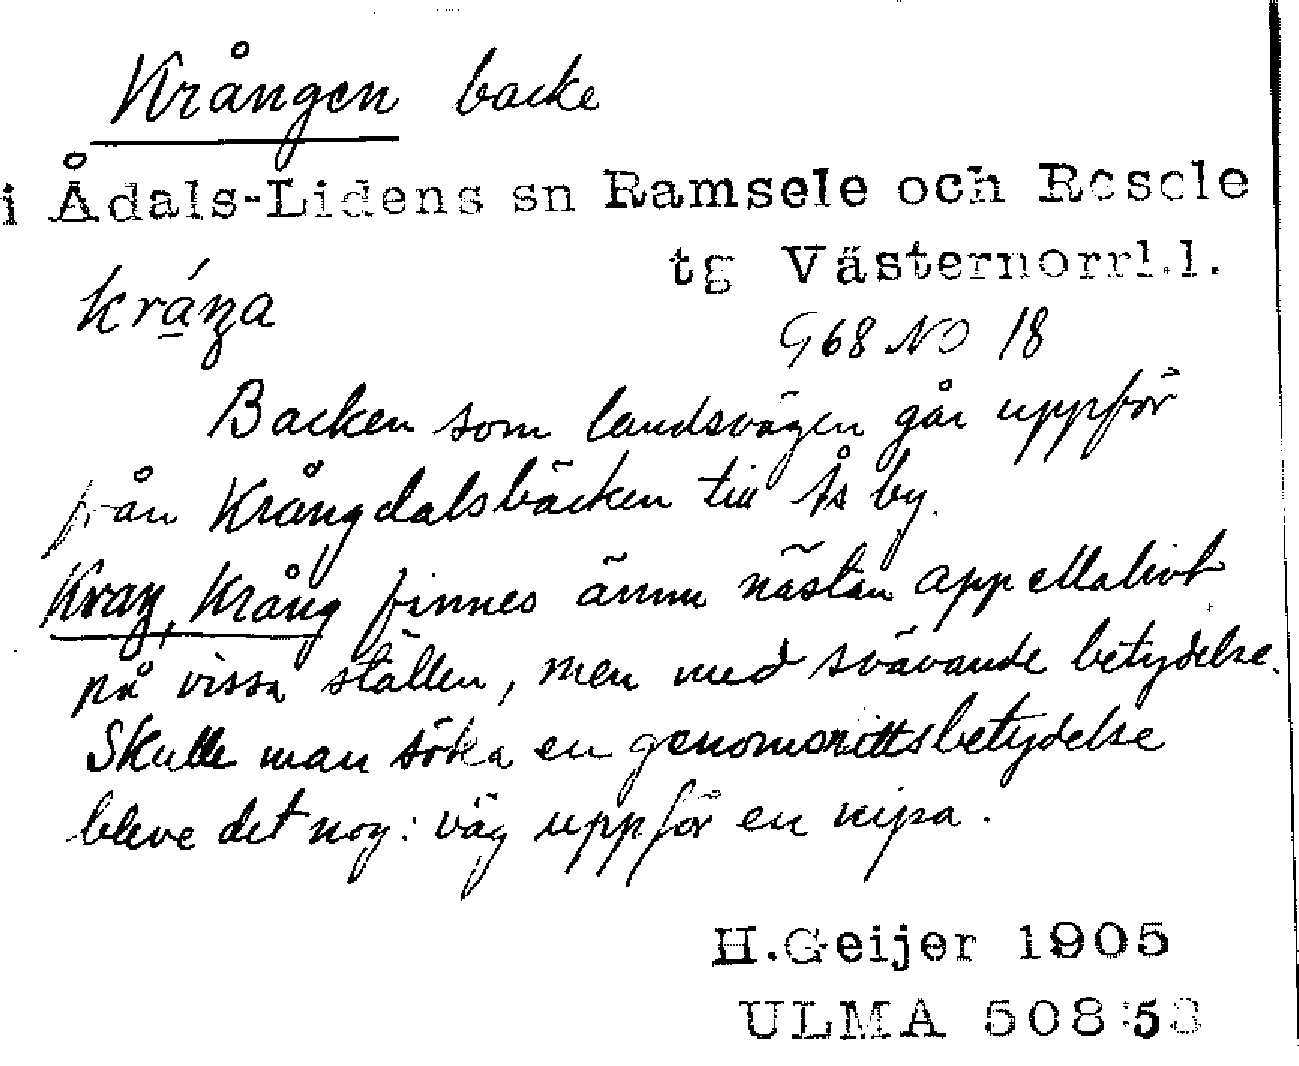 Krången backe
i Ådals-Lidens sn Ramsele och Resele
tg Västernorrl.l.
kráŋa
G68 NO 18
Backen som landsvägen går uppför
från Krångdalsbäcken till Ås by.
Kraŋ, Krång finnes ännu nästan appellativt
på vissa ställen, men med svävande betydelse.
Skulle man söka en genomsnittsbetydelse
bleve det nog: väg uppför en nipa.
H.Geijer 1905
ULMA 508:53